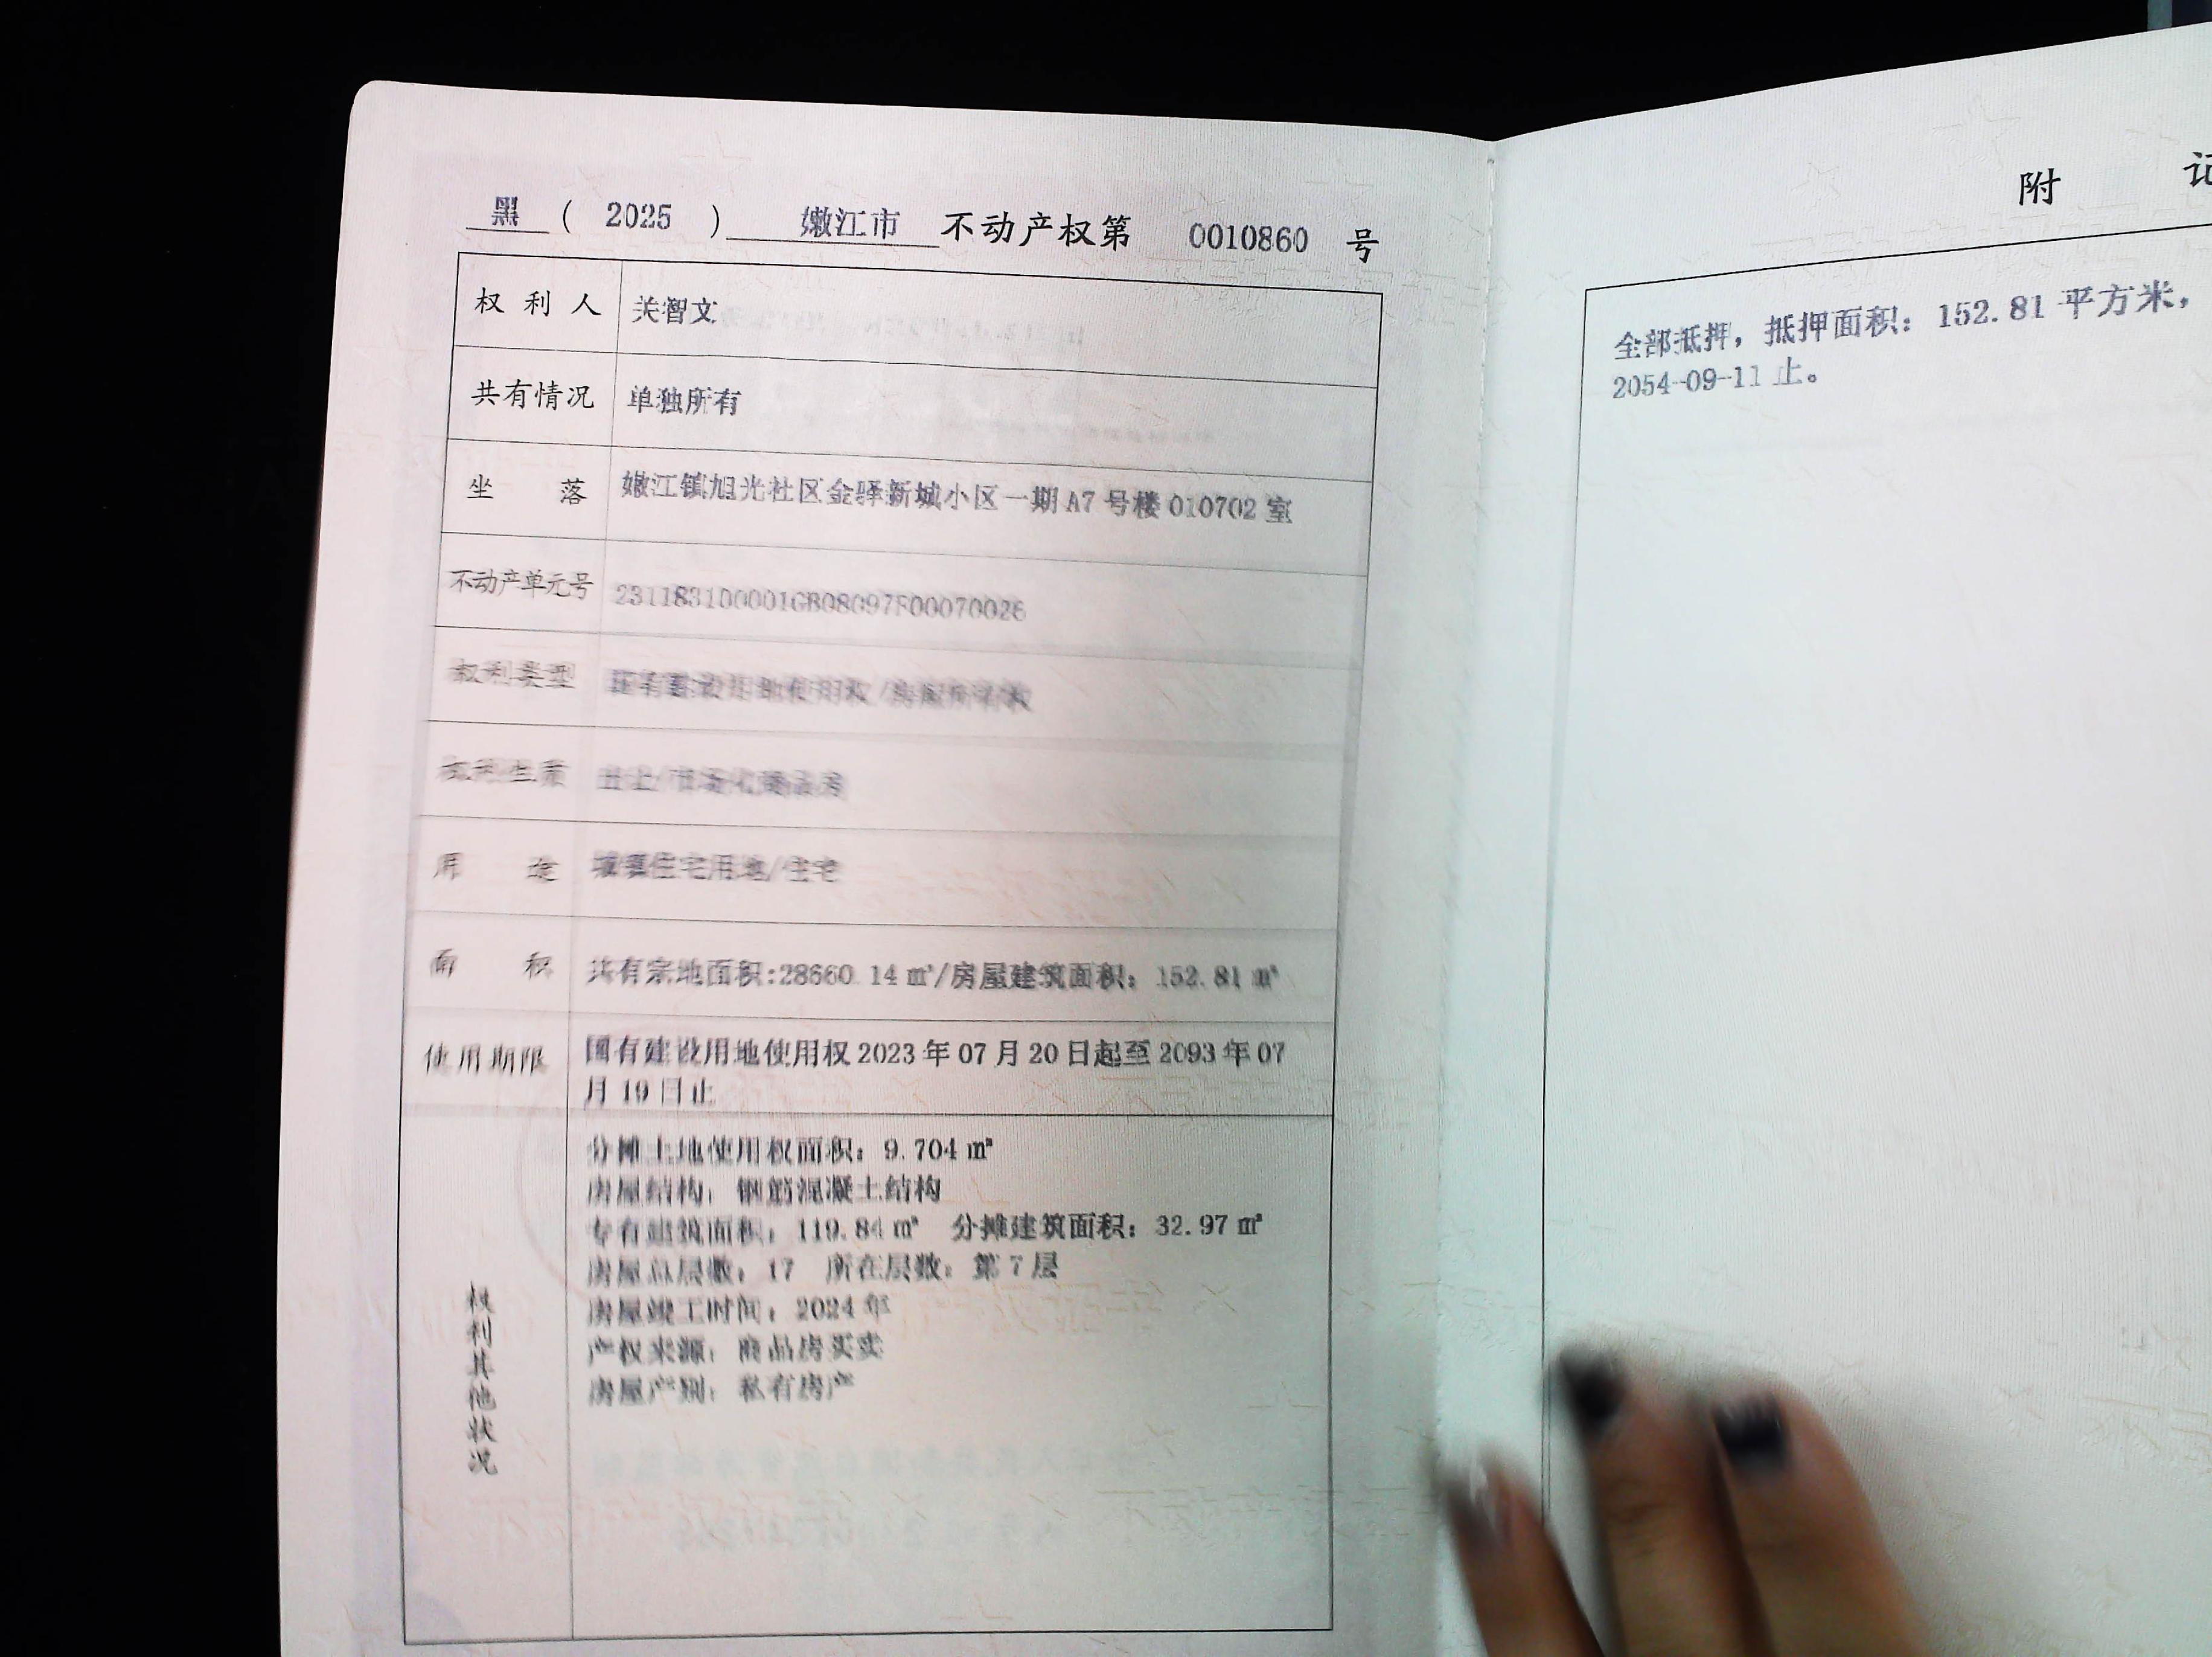 黑 ( 2025 ) 嫩江市 不动产权第 0010860 号
权利人 关智文
共有情况 单独所有
坐落 嫩江镇旭光社区金驿新城小区一期A7号楼010702室
不动产单元号 231183100001GB08097F00070026
权利类型 国有建设用地使用权/房屋所有权
权利性质 出让/市场化商品房
用途 城镇住宅用地/住宅
面积 共有宗地面积:28660.14㎡/房屋建筑面积：152.81㎡
使用期限 国有建设用地使用权2023年07月20日起至2093年07
月19日止
权利其他状况
分摊土地使用权面积：9.704㎡
房屋结构：钢筋混凝土结构
专有建筑面积：119.84㎡ 分摊建筑面积：32.97㎡
房屋总层数：17 所在层数：第7层
房屋竣工时间：2024年
产权来源：商品房买卖
房屋产别：私有房产
附 记
全部抵押，抵押面积：152.81平方米，
2054-09-11止。